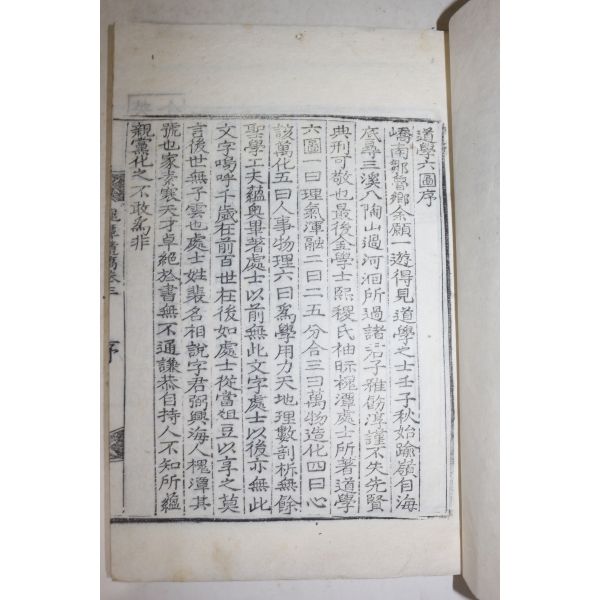 道學六圖序
嶠南鄒魯鄕余願一遊得見道學之士壬子秋始踰嶺自海
底尋三溪入陶山過河洄所過諸君子雅飭淳謹不失先賢
典刑可敬也最後金學士熙稷氏柚眎槐潭處士所著道學
六圖一曰理氣渾融二曰二五分合三曰萬物造化四曰心
該萬化五曰人事物理六曰爲學用力天地理數剖析無餘
聖學工夫蘊奧畢著處士以前無此文字處士以後亦無此
文字嗚呼千歲在前百世在後如處士從當俎豆以享之莫
言後世無子雲也處士姓裴名相說字君弼興海人槐潭其
號也家素襄天才卓絶於書無不通謙恭自持人不知所蘊
親黨化之不敢爲非
卷三
序